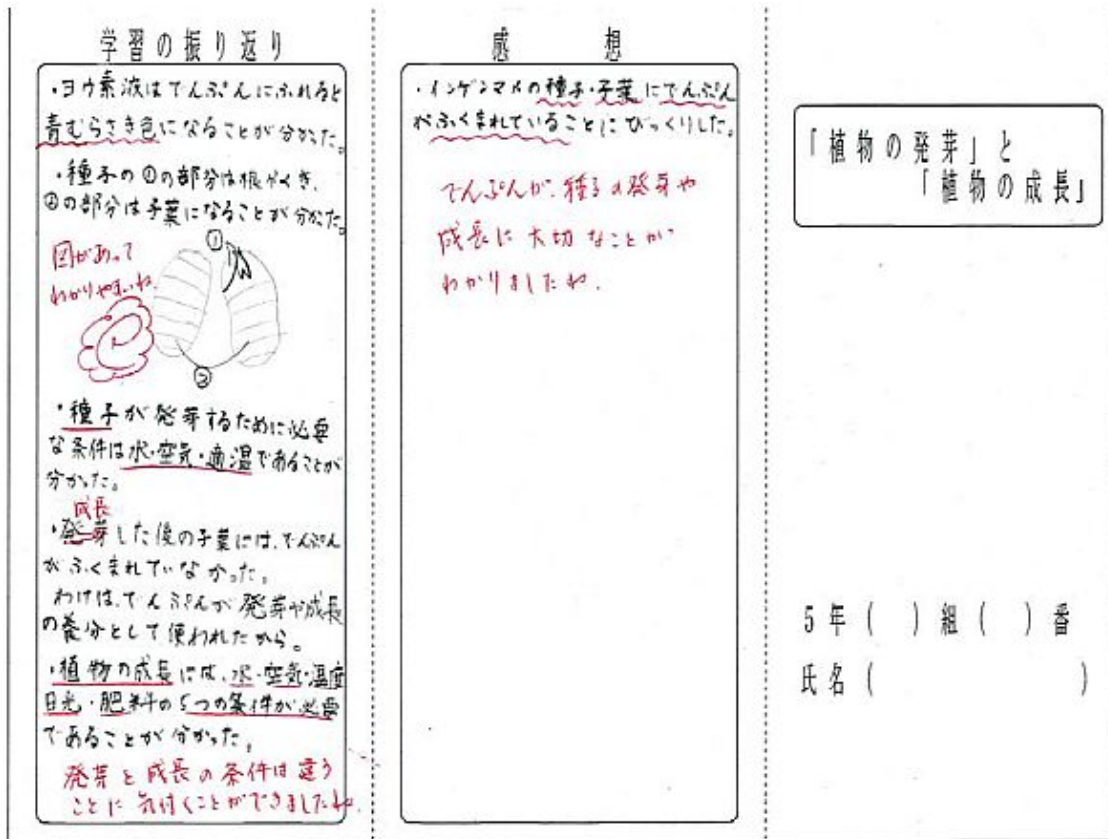 学習の振り返り
・ヨウ素液はでんぷんにふれると
青むらさき色になることが分かった。
・種子の①の部分は根やくき、
②の部分は子葉になることが分かった。
図があって
わかりやすいね。
①
②
・種子が発芽するために必要
な条件は水・空気・適温であることが
分かった。
成長
・発芽した後の子葉には、でんぷん
がふくまれていなかった。
わけは、でんぷんが発芽や成長
の養分として使われたから。
・植物の成長には、水・空気・温度
日光・肥料の5つの条件が必要
であることが分かった。
発芽と成長の条件は違う
ことに気付くことができましたね。
感想
・インゲンマメの種子・子葉にでんぷん
がふくまれていることにびっくりした。
でんぷんが、種子の発芽や
成長に大切なことが
わかりましたね。
「植物の発芽」と
「植物の成長」
5年( )組( )番
氏名( )